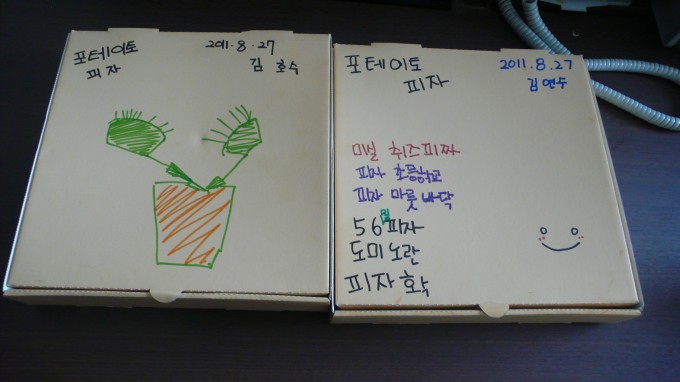 포테이토
피자
2011.8.27
김호수
포테이토
피자
2011.8.27
김연수
미설 취즈피짜
피자 초등학교
피자 마룻바닥
56피자
도미노란
피자화